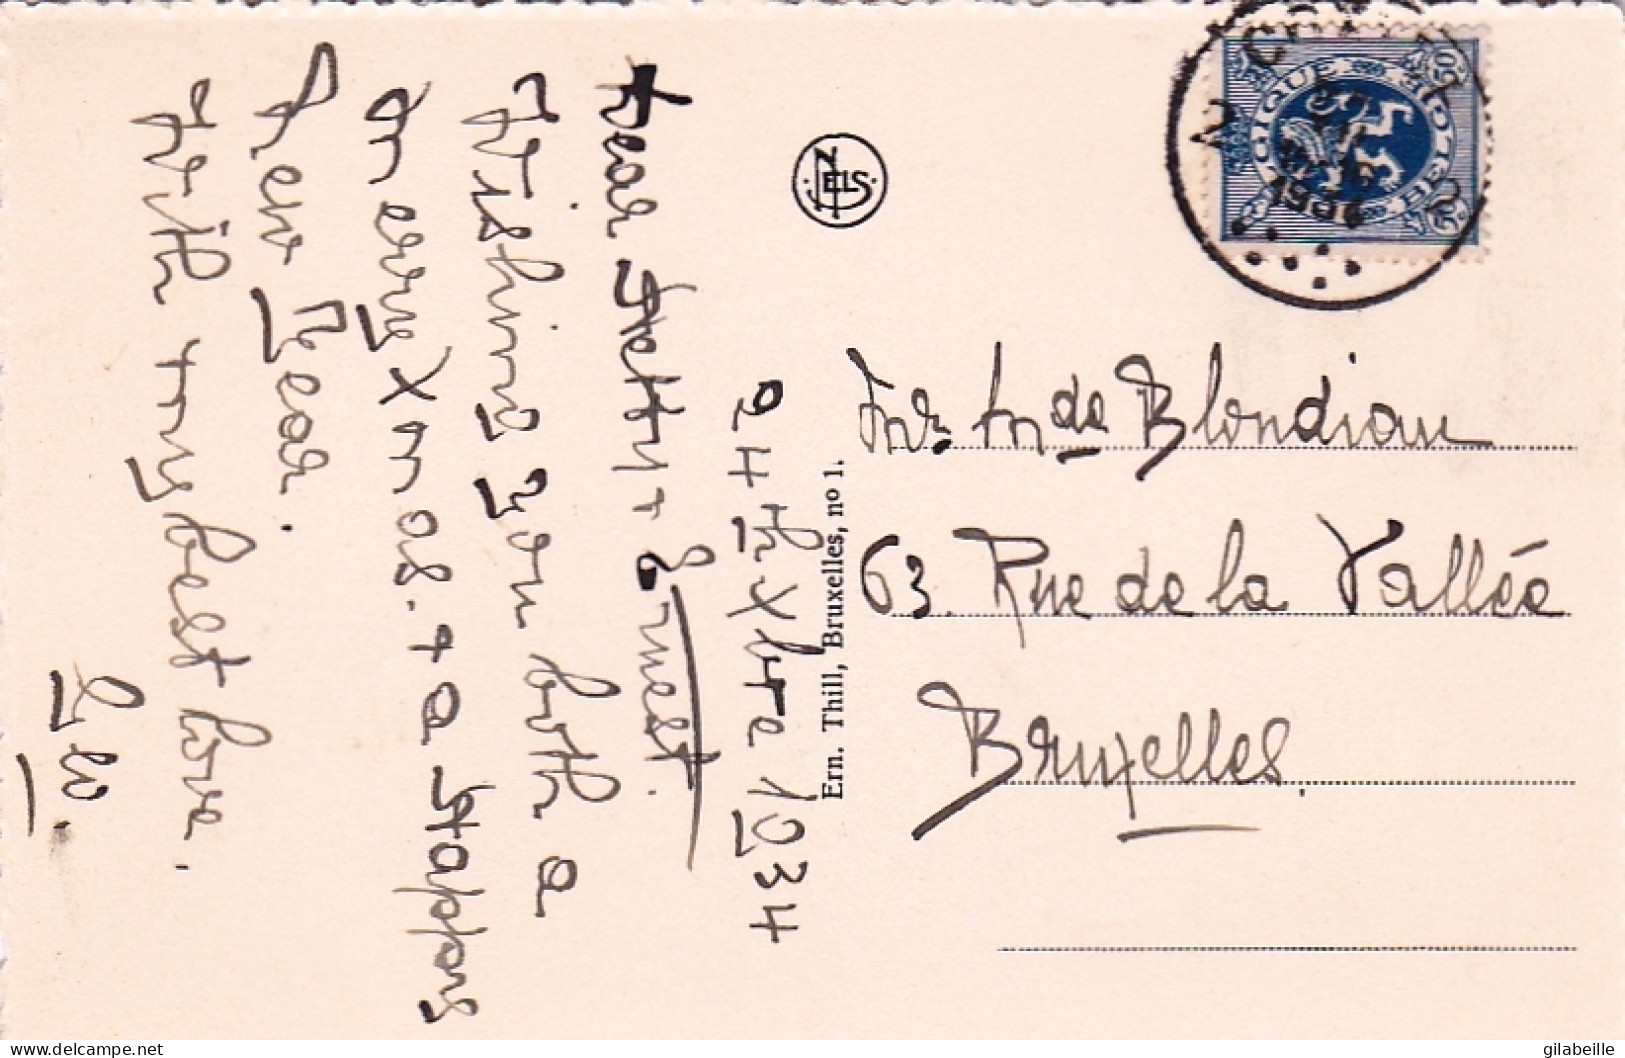 24th Xbre 1934
Dear Betty + Ernest.
Wishing you both a
merry Xmas. + a Happy
New Year.
With my best love.
Lew.
NELS
Ern. Thill, Bruxelles, nº 1.
BELGIQUE BELGIË
Mr. Mde Blondiau
63. Rue de la Vallée
Bruxelles.
delcampe.net
gilabeille